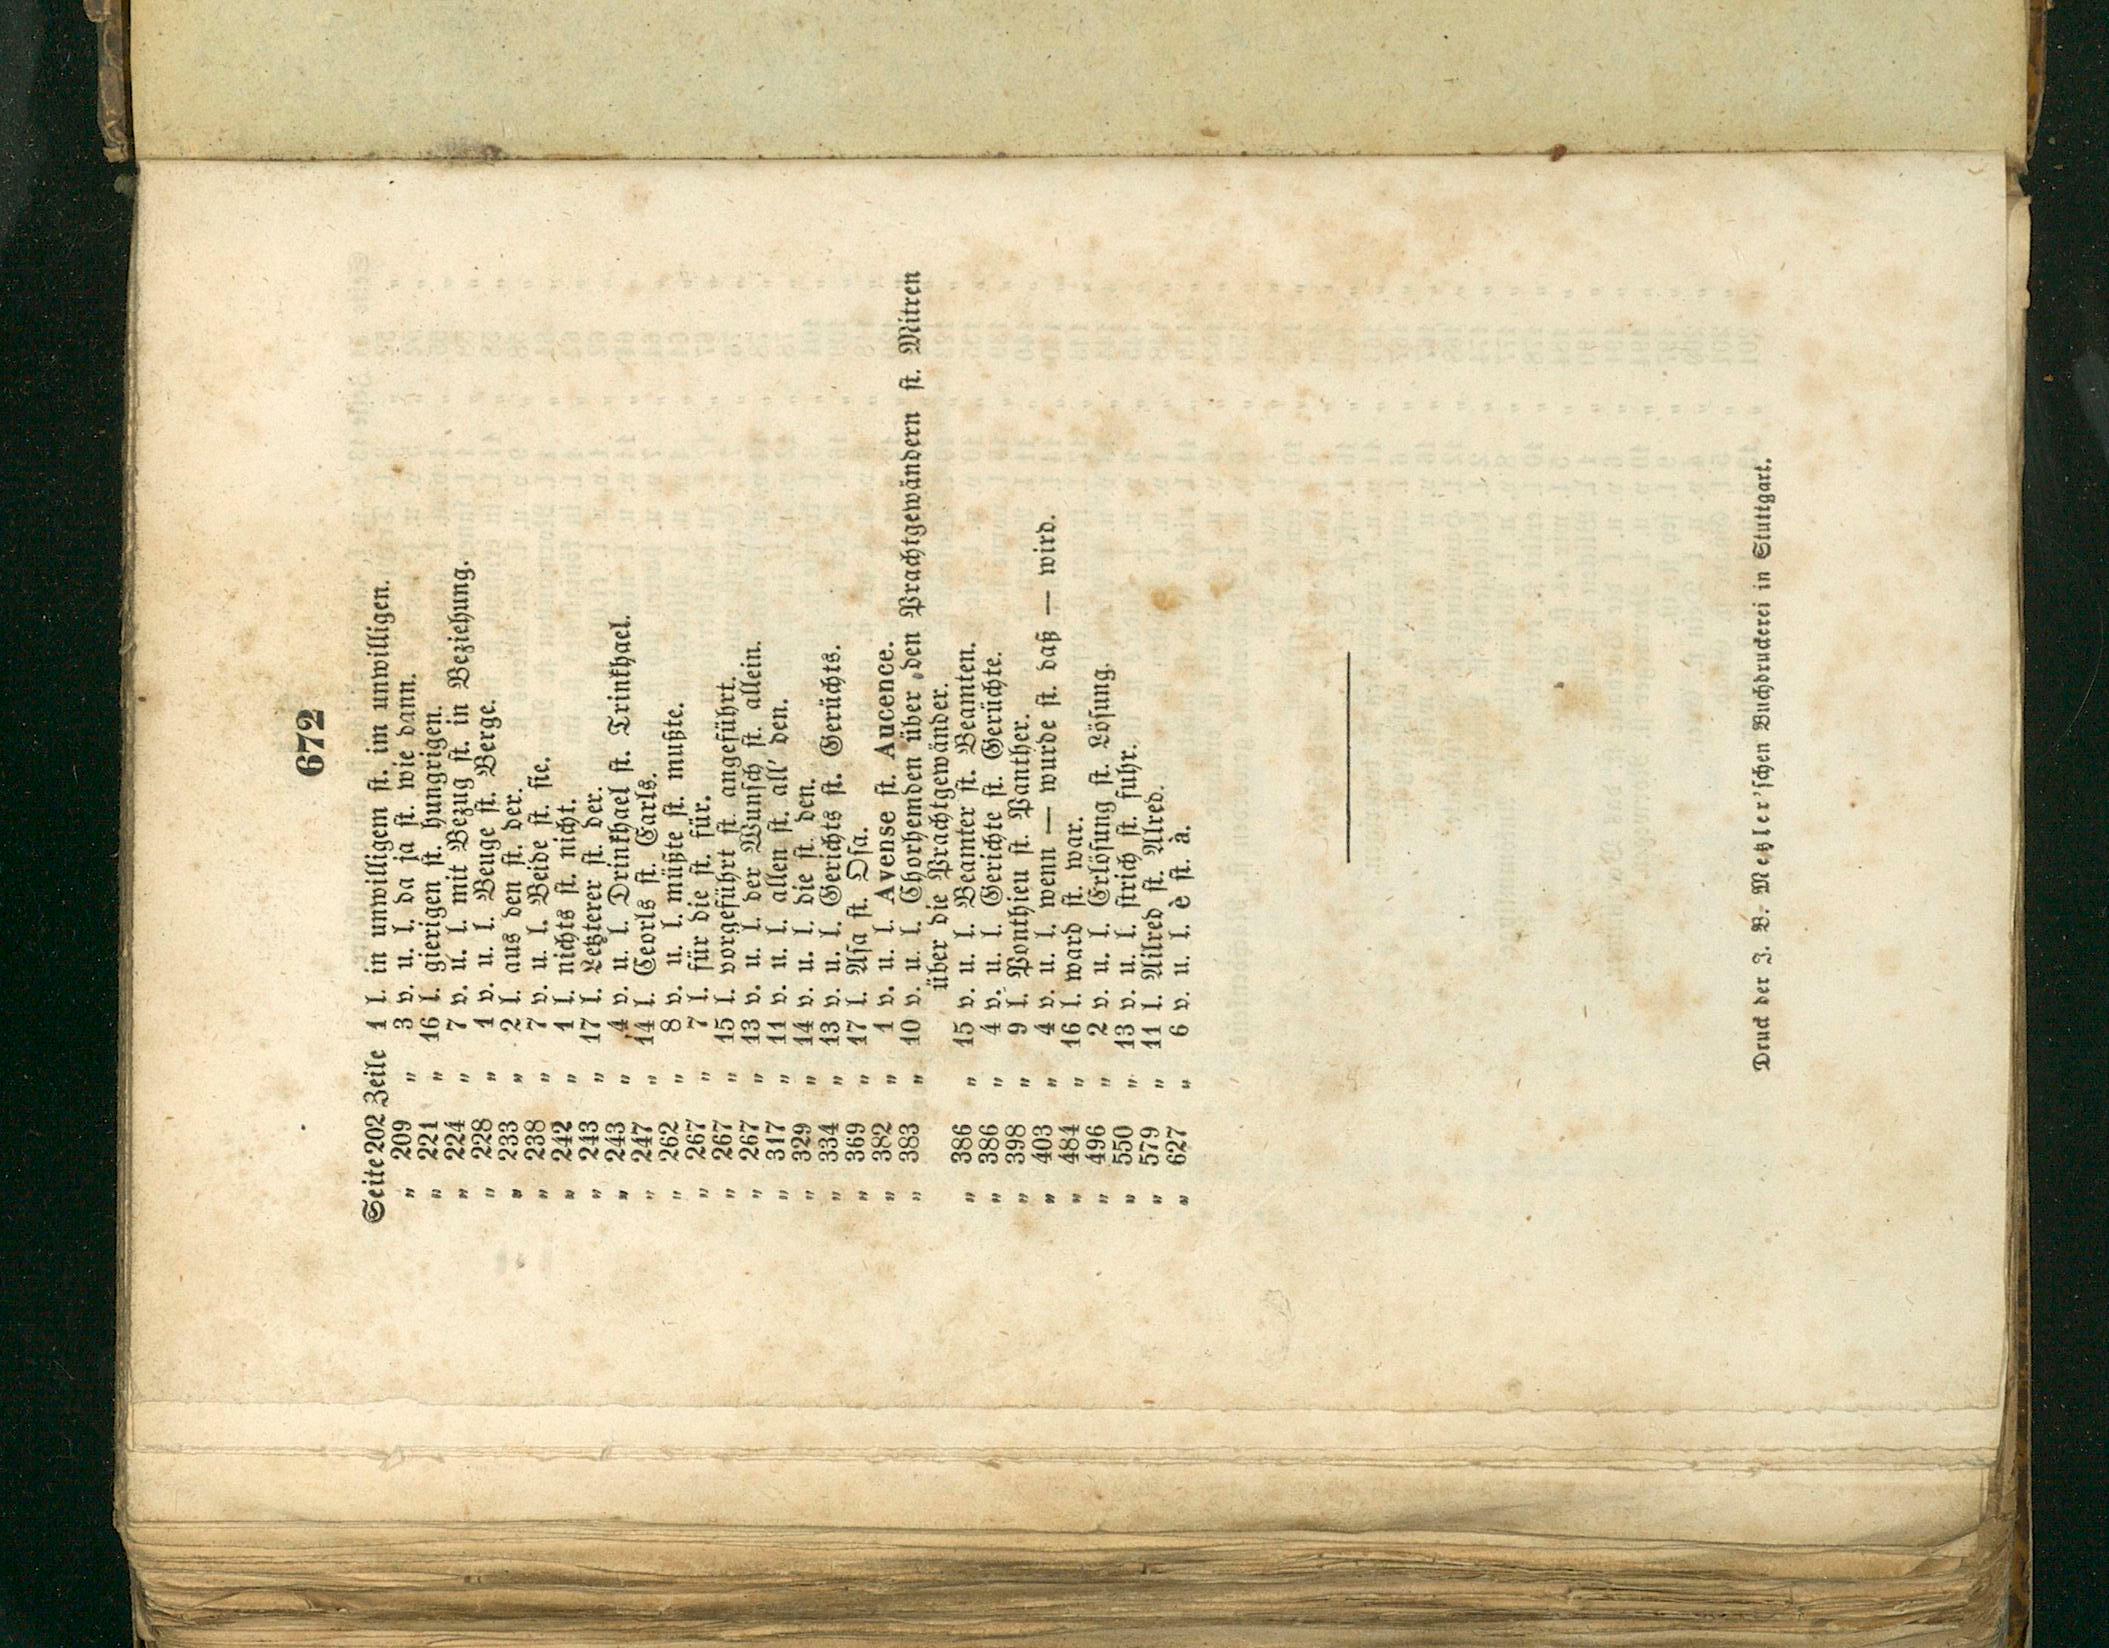 672
Seite 202 Zeile 1 l. in unwilligem st. im unwilligen.
„ 209 „ 3 v. u. l. da ja st. wie dann.
„ 221 „ 16 l. gierigen st. hungrigen.
„ 224 „ 7 v. u. l. mit Bezug st. in Beziehung.
„ 228 „ 1 v. u. l. Benge st. Berge.
„ 233 „ 2 l. aus den st. der.
„ 238 „ 7 v. u. l. Beide st. sie.
„ 242 „ 1 l. nichts st. nicht.
„ 243 „ 17 l. Letzterer st. der.
„ 243 „ 4 v. u. l. Drinkhael st. Trinkhael.
„ 247 „ 14 l. Ceorls st. Earls.
„ 262 „ 8 v. u. l. müßte st. mußte.
„ 267 „ 7 l. für die st. für.
„ 267 „ 15 l. vorgeführt st. angeführt.
„ 267 „ 13 v. u. l. der Wunsch st. allein.
„ 317 „ 11 v. u. l. allen st. all' den.
„ 329 „ 14 v. u. l. die st. den.
„ 334 „ 13 v. u. l. Gerichts st. Gerüchts.
„ 369 „ 17 l. Asa st. Osa.
„ 382 „ 1 v. u. l. Avense st. Aucence.
„ 383 „ 10 v. u. l. Chorhemden über den Prachtgewändern st. Mitren
über die Prachtgewänder.
„ 386 „ 15 v. u. l. Beamter st. Beamten.
„ 386 „ 4 v. u. l. Gerichte st. Gerüchte.
„ 398 „ 9 l. Ponthieu st. Panther.
„ 403 „ 4 v. u. l. wenn — wurde st. daß — wird.
„ 484 „ 16 l. ward st. war.
„ 496 „ 2 v. u. l. Erlösung st. Lösung.
„ 550 „ 13 v. u. l. strich st. fuhr.
„ 579 „ 11 l. Ailred st. Alred.
„ 627 „ 6 v. u. l. è st. à.
Druck der J. B. Metzler'schen Buchdruckerei in Stuttgart.